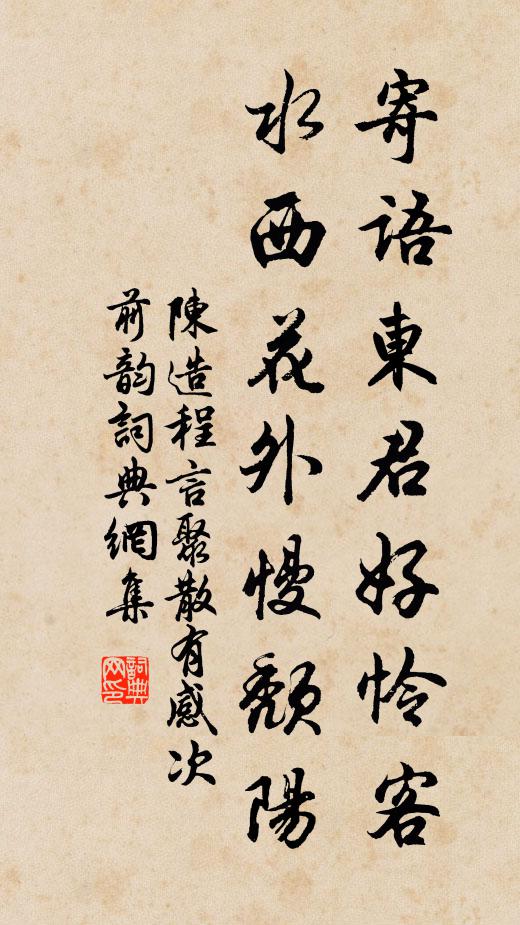 寄語東君好怜客
水西花外慢頹陽
陳造程言聚散有感次
前韵詞典網集
詞典
网印